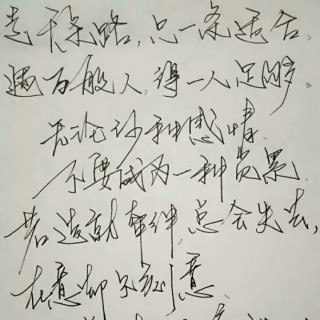 走千条路，只一条适合
遇万般人，得一人足够
无论沙种感情
不要成为一种负累
若造就牵绊，总会失去，
在意却不刻意